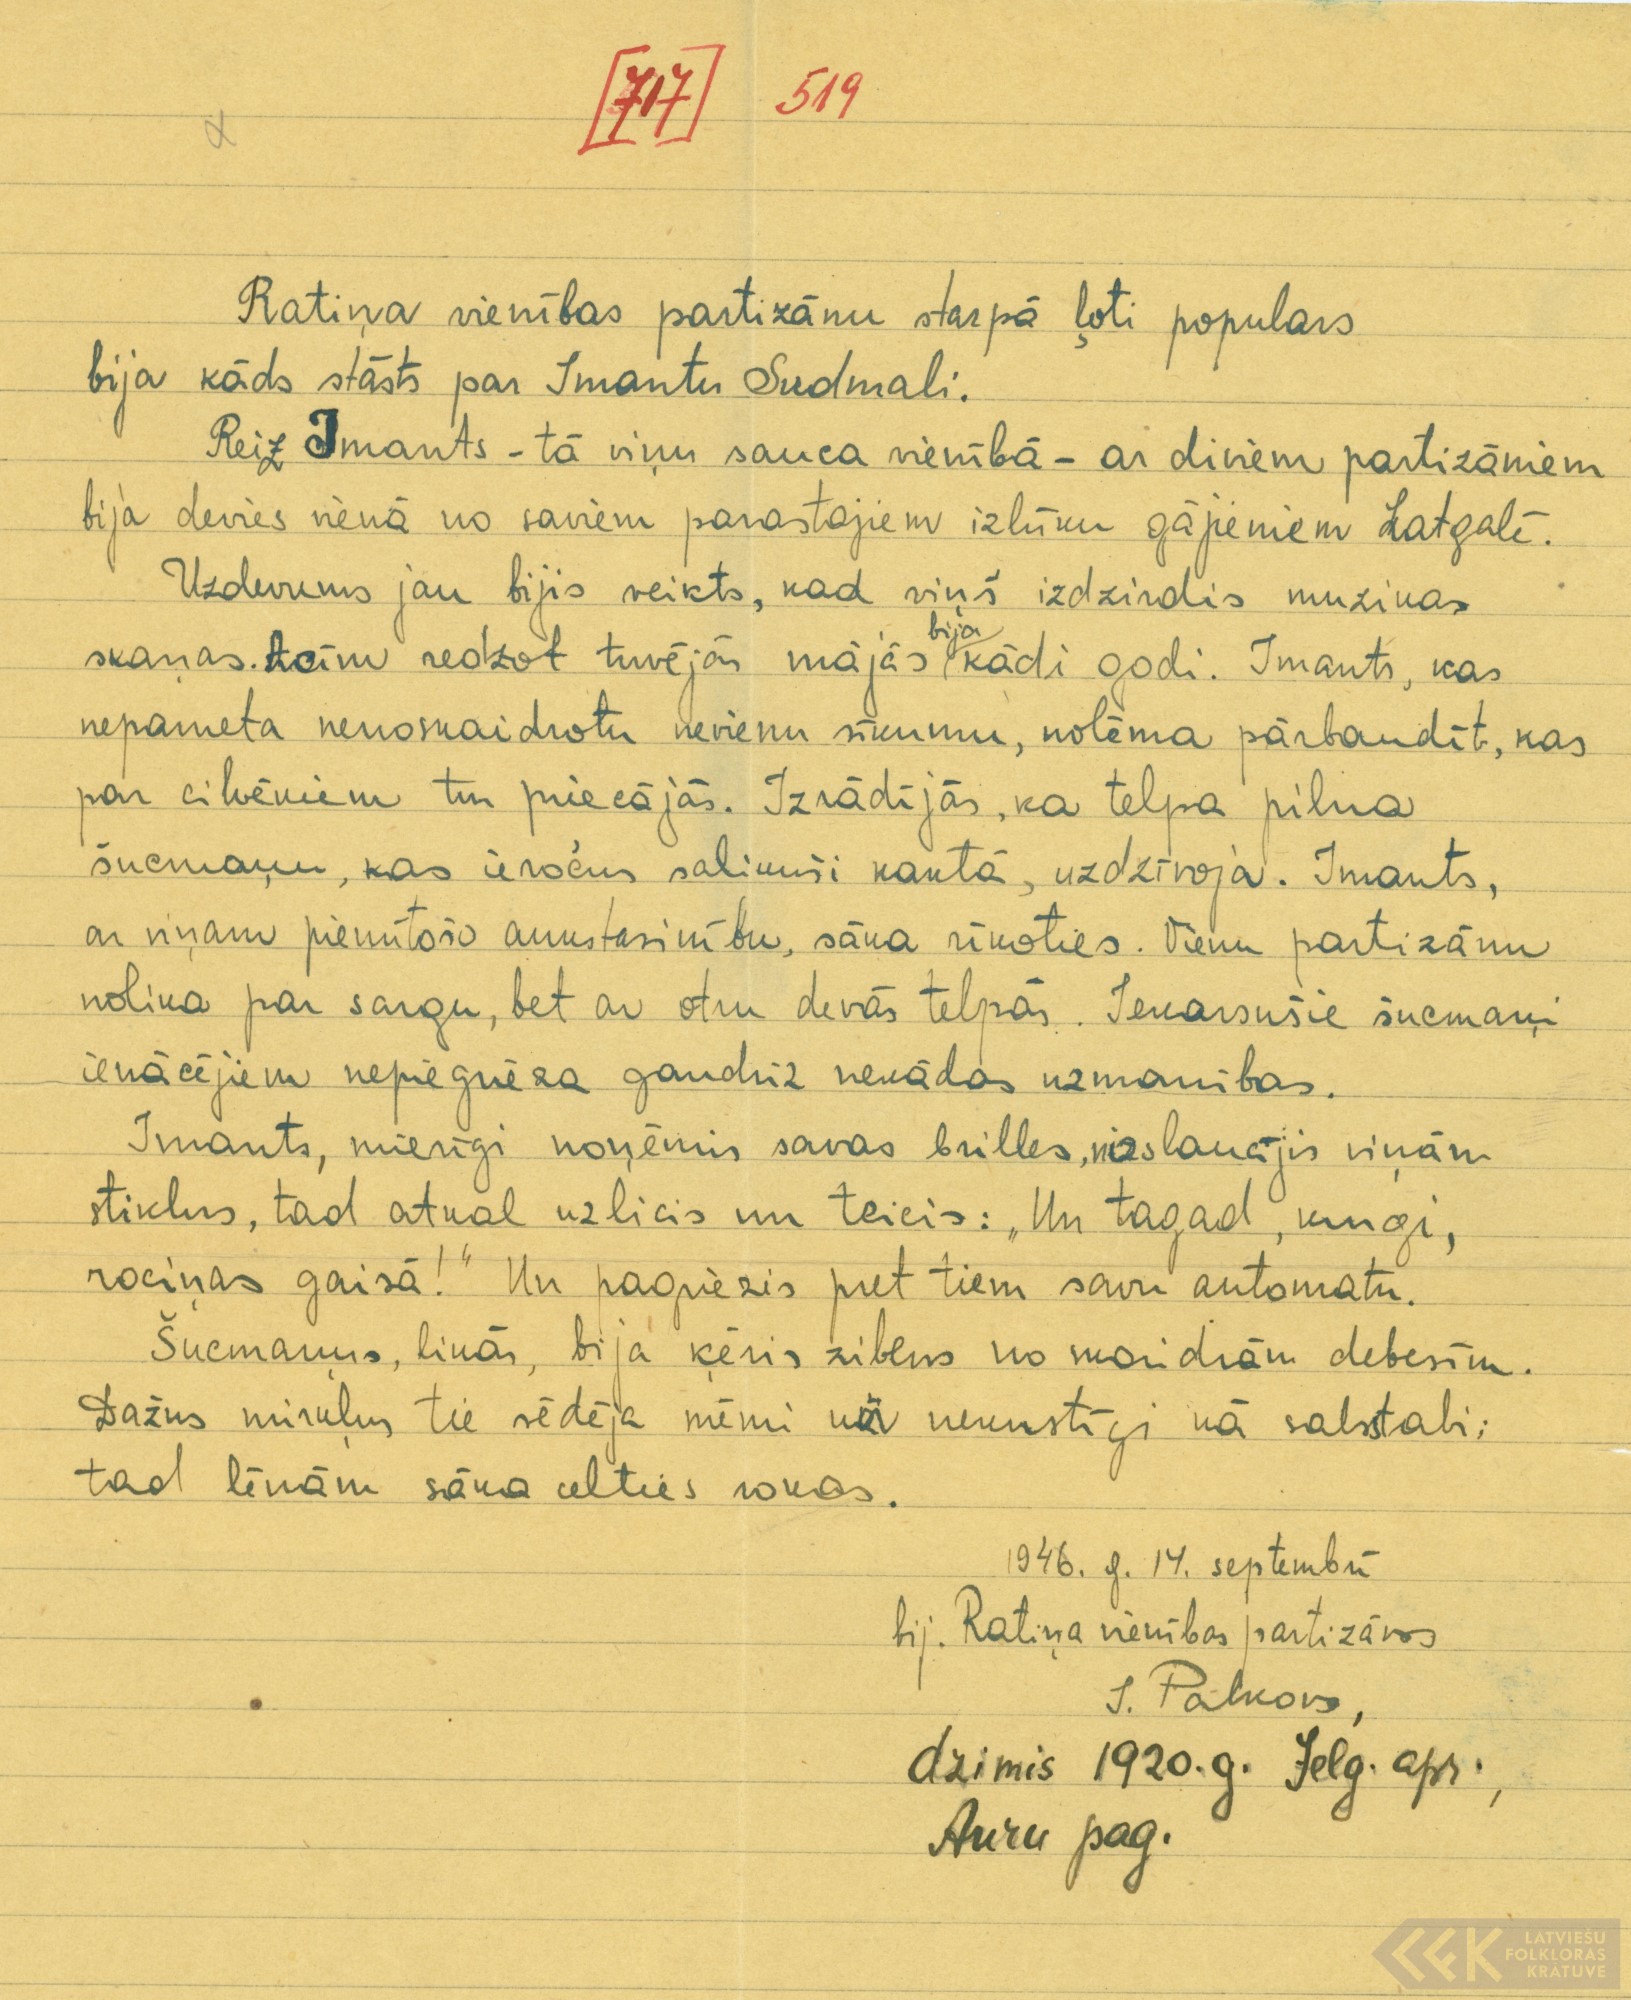 [717] 519
Ratiņa vienības partizānu starpā ļoti populars
bija kāds stāsts par Imantu Sudmali.
Reiz Imants - tā viņu sauca vienībā - ar diviem partizāniem
bija devies vienā no saviem parastajiem izlūku gājieniem Latgalē.
Uzdevums jau bijis veikts, kad viņš izdzirdis muzikas
bija
skaņas. Acīm redzot tuvējās mājās kādi godi. Imants, kas
nepameta nenoskaidrotu nevienu sīkumu, nolēma pārbaudīt, kas
par cilvēkiem tur priecājās. Izrādījās, ka telpa pilna
šucmaņu, kas ieročus salikuši kaktā, uzdzīvoja. Imants,
ar viņam piemītošo aukstasinību, sāka rīkoties. Vienu partizānu
nolika par sargu, bet ar otru devās telpās. Iekarsušie šucmaņi
ienācējiem nepiegrieza gandrīz nekādas uzmanības.
Imants, mierīgi noņēmis savas brilles, izslaucījis viņām
stiklus, tad atkal uzlicis un teicis: „Un tagad, kungi,
rociņas gaisā!" Un pagriezis pret tiem savu automatu.
Šucmaņus, likās, bija ķēris zibens no skaidrām debesīm.
Dažus mirkļus tie sēdēja mēmi un nekustīgi kā salsstabi;
tad lēnām sāka celties rokas.
1946. g. 14. septembrī
bij. Ratiņa vienības partizāns
J. Paļkovs,
dzimis 1920.g. Jelg. apr.,
Auru pag.
LATVIEŠU
FOLKLORAS
KRĀTUVE